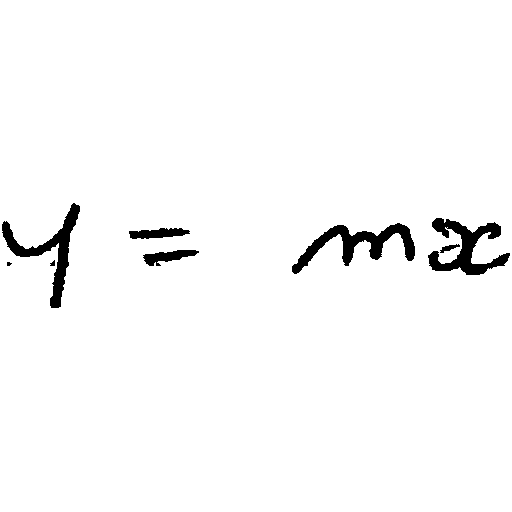 y = mx